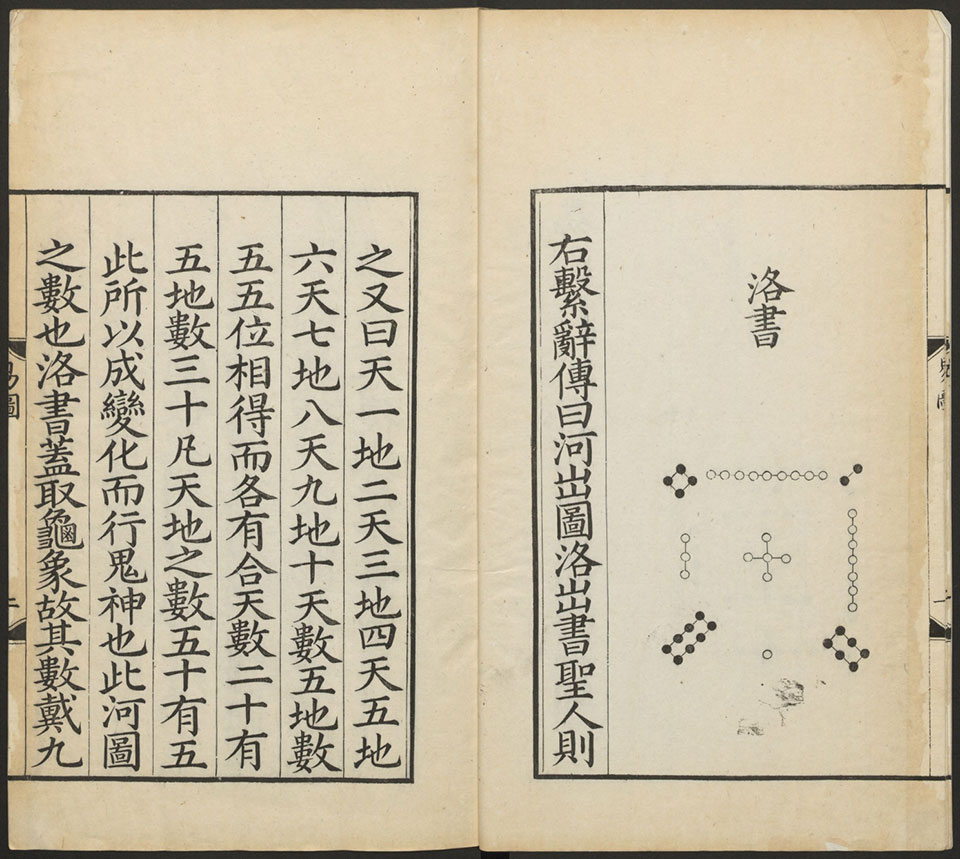 洛書
右繫辭傳曰河出圖洛出書聖人則
之又曰天一地二天三地四天五地
六天七地八天九地十天數五地數
五五位相得而各有合天數二十有
五地數三十凡天地之數五十有五
此所以成變化而行鬼神也此河圖
之數也洛書蓋取龜象故其數戴九
易圖